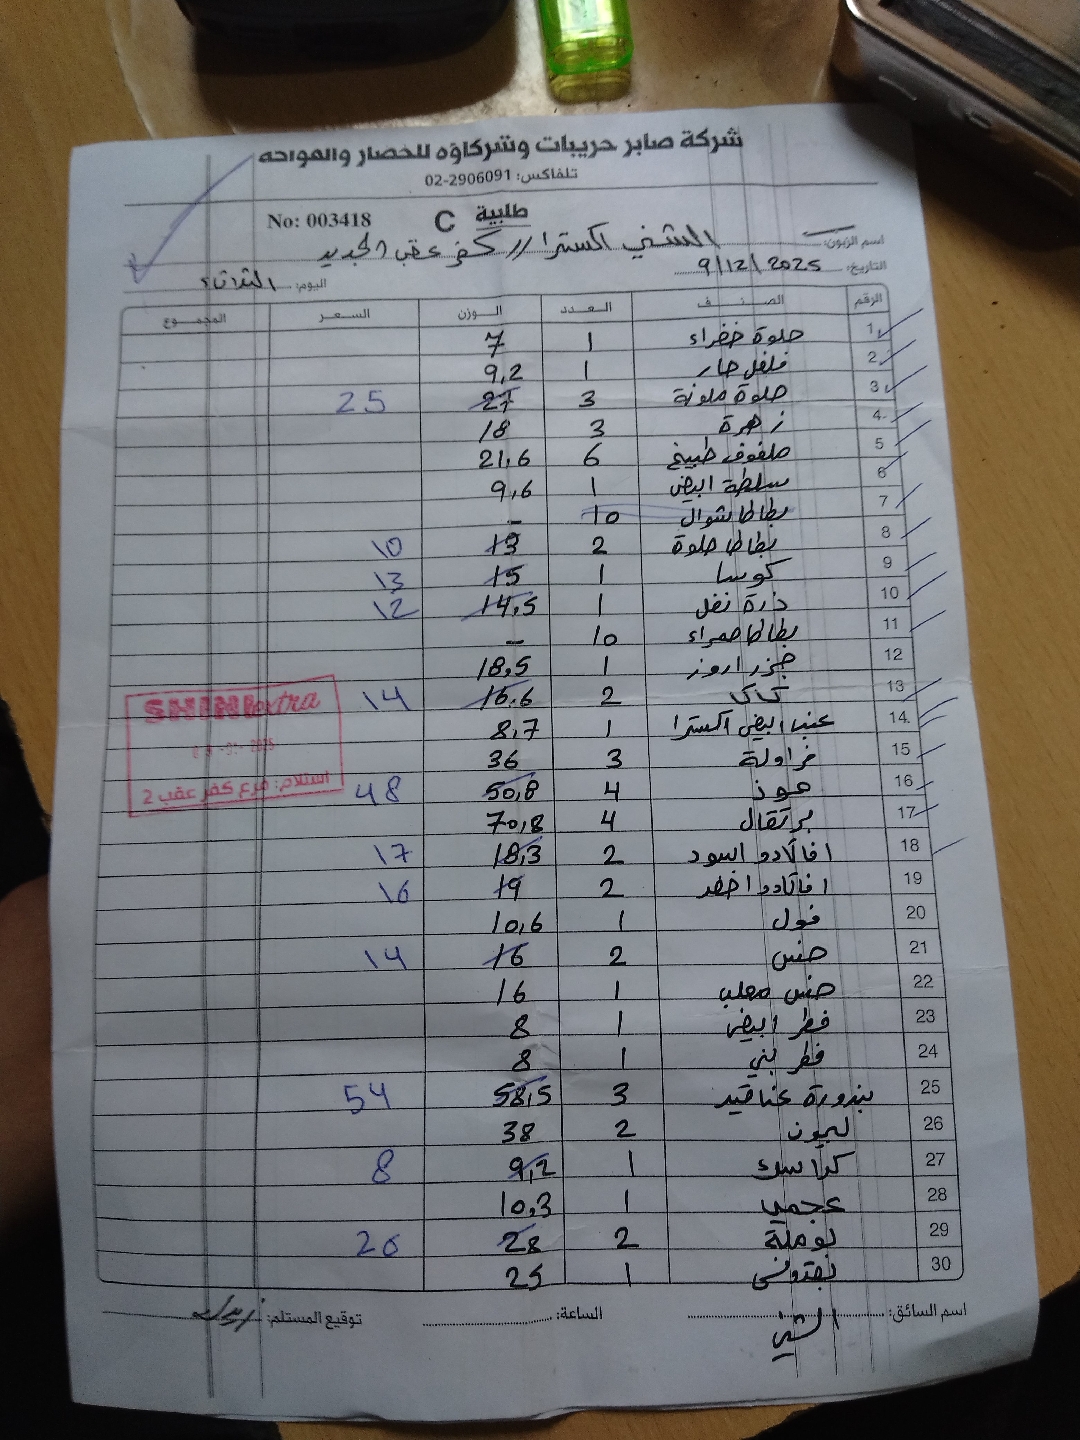 شركة صابر حريبات وشركاؤه للخضار والفواكه
تلفاكس: 02-2906091
طلبية C No: 003418
اسم الزبون: الشني اكسترا // كفر عقب الجديد
التاريخ: 9/12/2025 اليوم: الثلاثاء
الرقم الصنف العدد الوزن السعر المجموع
1 حلوة خضراء 1 7
2 فلفل حار 1 9,2
3 حلوة ملونة 3 27 25
4 زهرة 3 18
5 ملفوف طبيخ 6 21,6
6 سلطة ابيض 1 9,6
7 بطاطا شوال 10 -
8 بطاطا حلوة 2 13 10
9 كوسا 1 15 13
10 ذرة نفل 1 14,5 12
11 بطاطا حمراء 10 -
12 جزر اروز 1 18,5
13 كاكا 2 16,6 14
14 عنب ابيض اكسترا 1 8,7
15 فراولة 3 36
16 موز 4 50,8 48
17 برتقال 4 70,8
18 افاكادو اسود 2 18,3 17
19 افاكادو اخضر 2 19 16
20 فول 1 10,6
21 خس 2 16 14
22 خس معلب 1 16
23 فطر ابيض 1 8
24 فطر بني 1 8
25 بندورة عناقيد 3 58,5 54
26 ليمون 2 38
27 1 9,2 8
28 عجمي 1 10,3
29 بوملة 2 28 26
30 بقدونس 1 25
SHINI extra
استلام: فرع كفر عقب 2
اسم السائق: الساعة: توقيع المستلم:
الشني